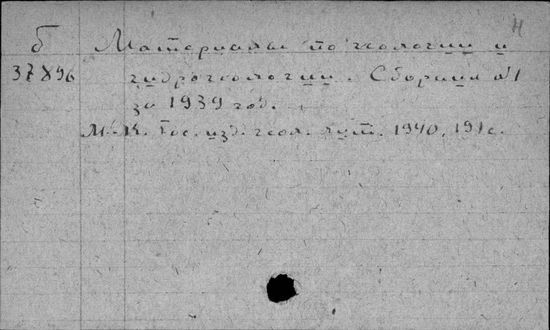 Н
б Материалы по геологии и
37896 гидрогеологии. Сборник №1
за 1939 год.
М.-Л. Гос. изд. геол. лит. 1940, 191 с.